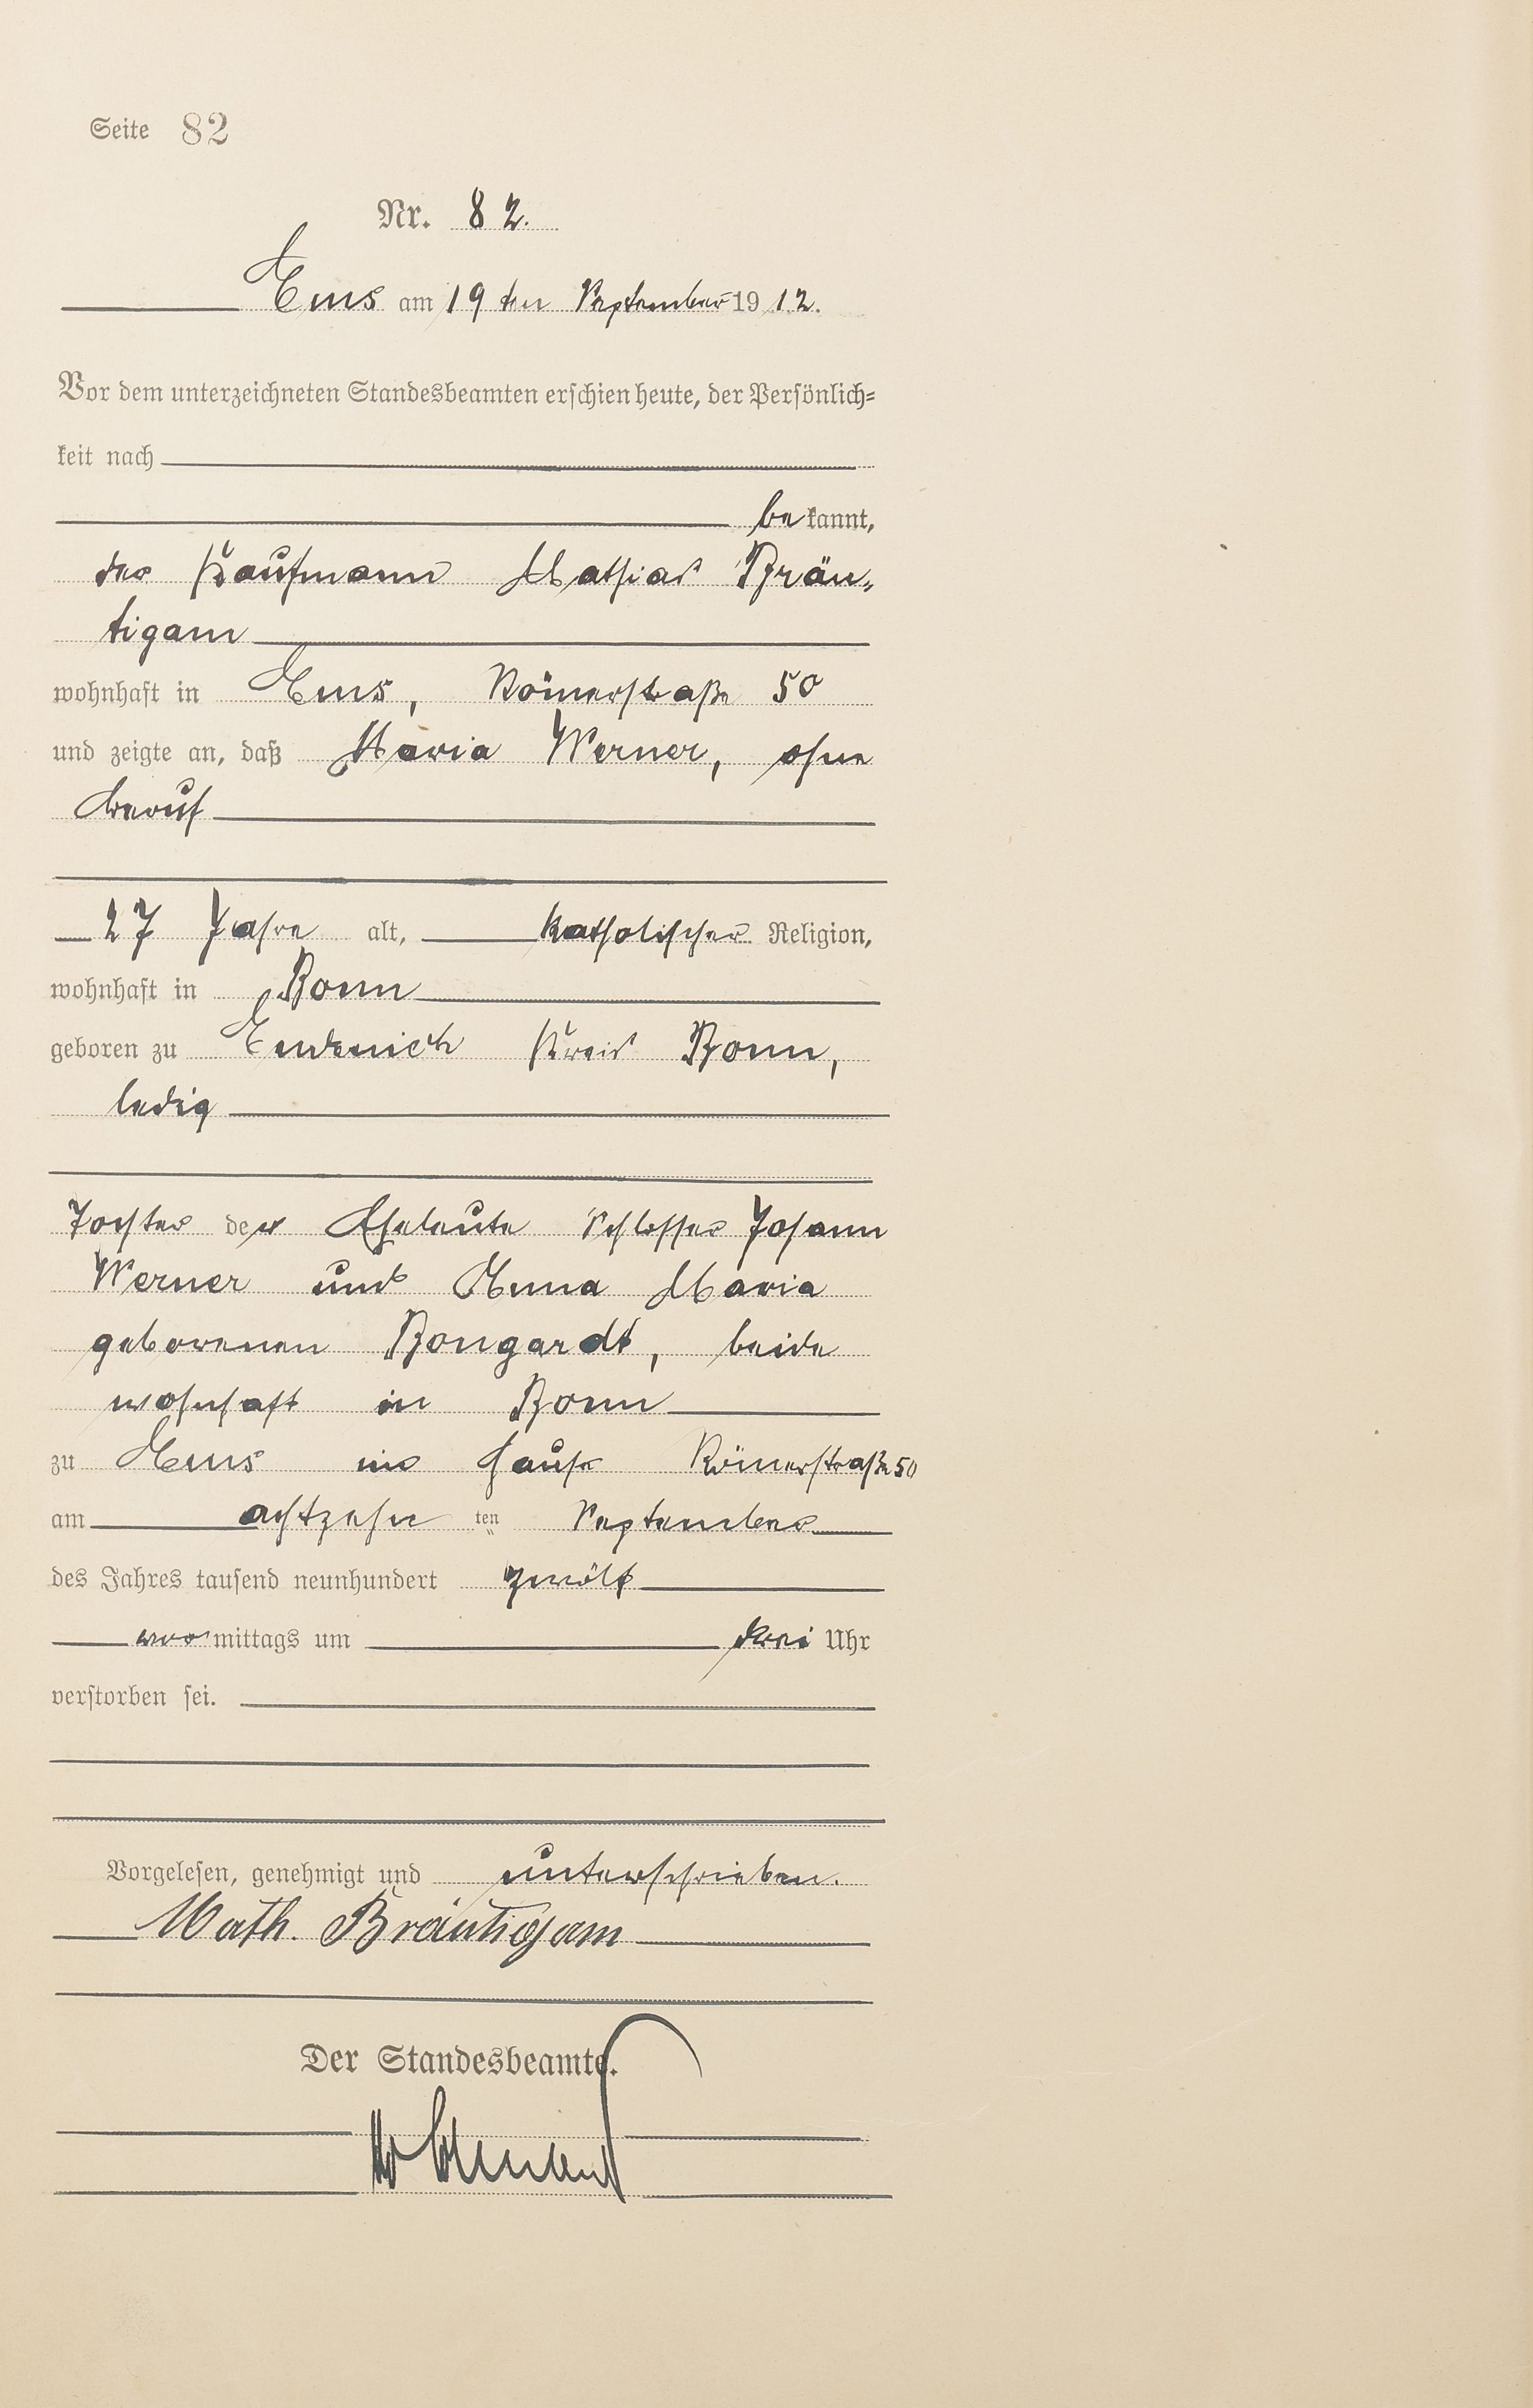 Seite 82
Nr. 82.
Ems am 19ten September 1912.
Vor dem unterzeichneten Standesbeamten erschien heute, der Persönlich-
keit nach
bekannt,
der Kaufmann Mathias Bräu-
tigam
wohnhaft in Ems, Römerstraße 50
und zeigte an, daß Maria Werner, ohne
Beruf
27 Jahre alt, katholischer Religion,
wohnhaft in Bonn
geboren zu Endenich Kreis Bonn,
ledig
Tochter der Eheleute Schlosser Johann
Werner und Anna Maria
geborenen Bongardt, beide
wohnhaft in Bonn
zu Ems im Hause Römerstraße 50
am achtzehnten September
des Jahres tausend neunhundert zwölf
vormittags um drei Uhr
verstorben sei.
Vorgelesen, genehmigt und unterschrieben.
Math. Bräutigam
Der Standesbeamte.